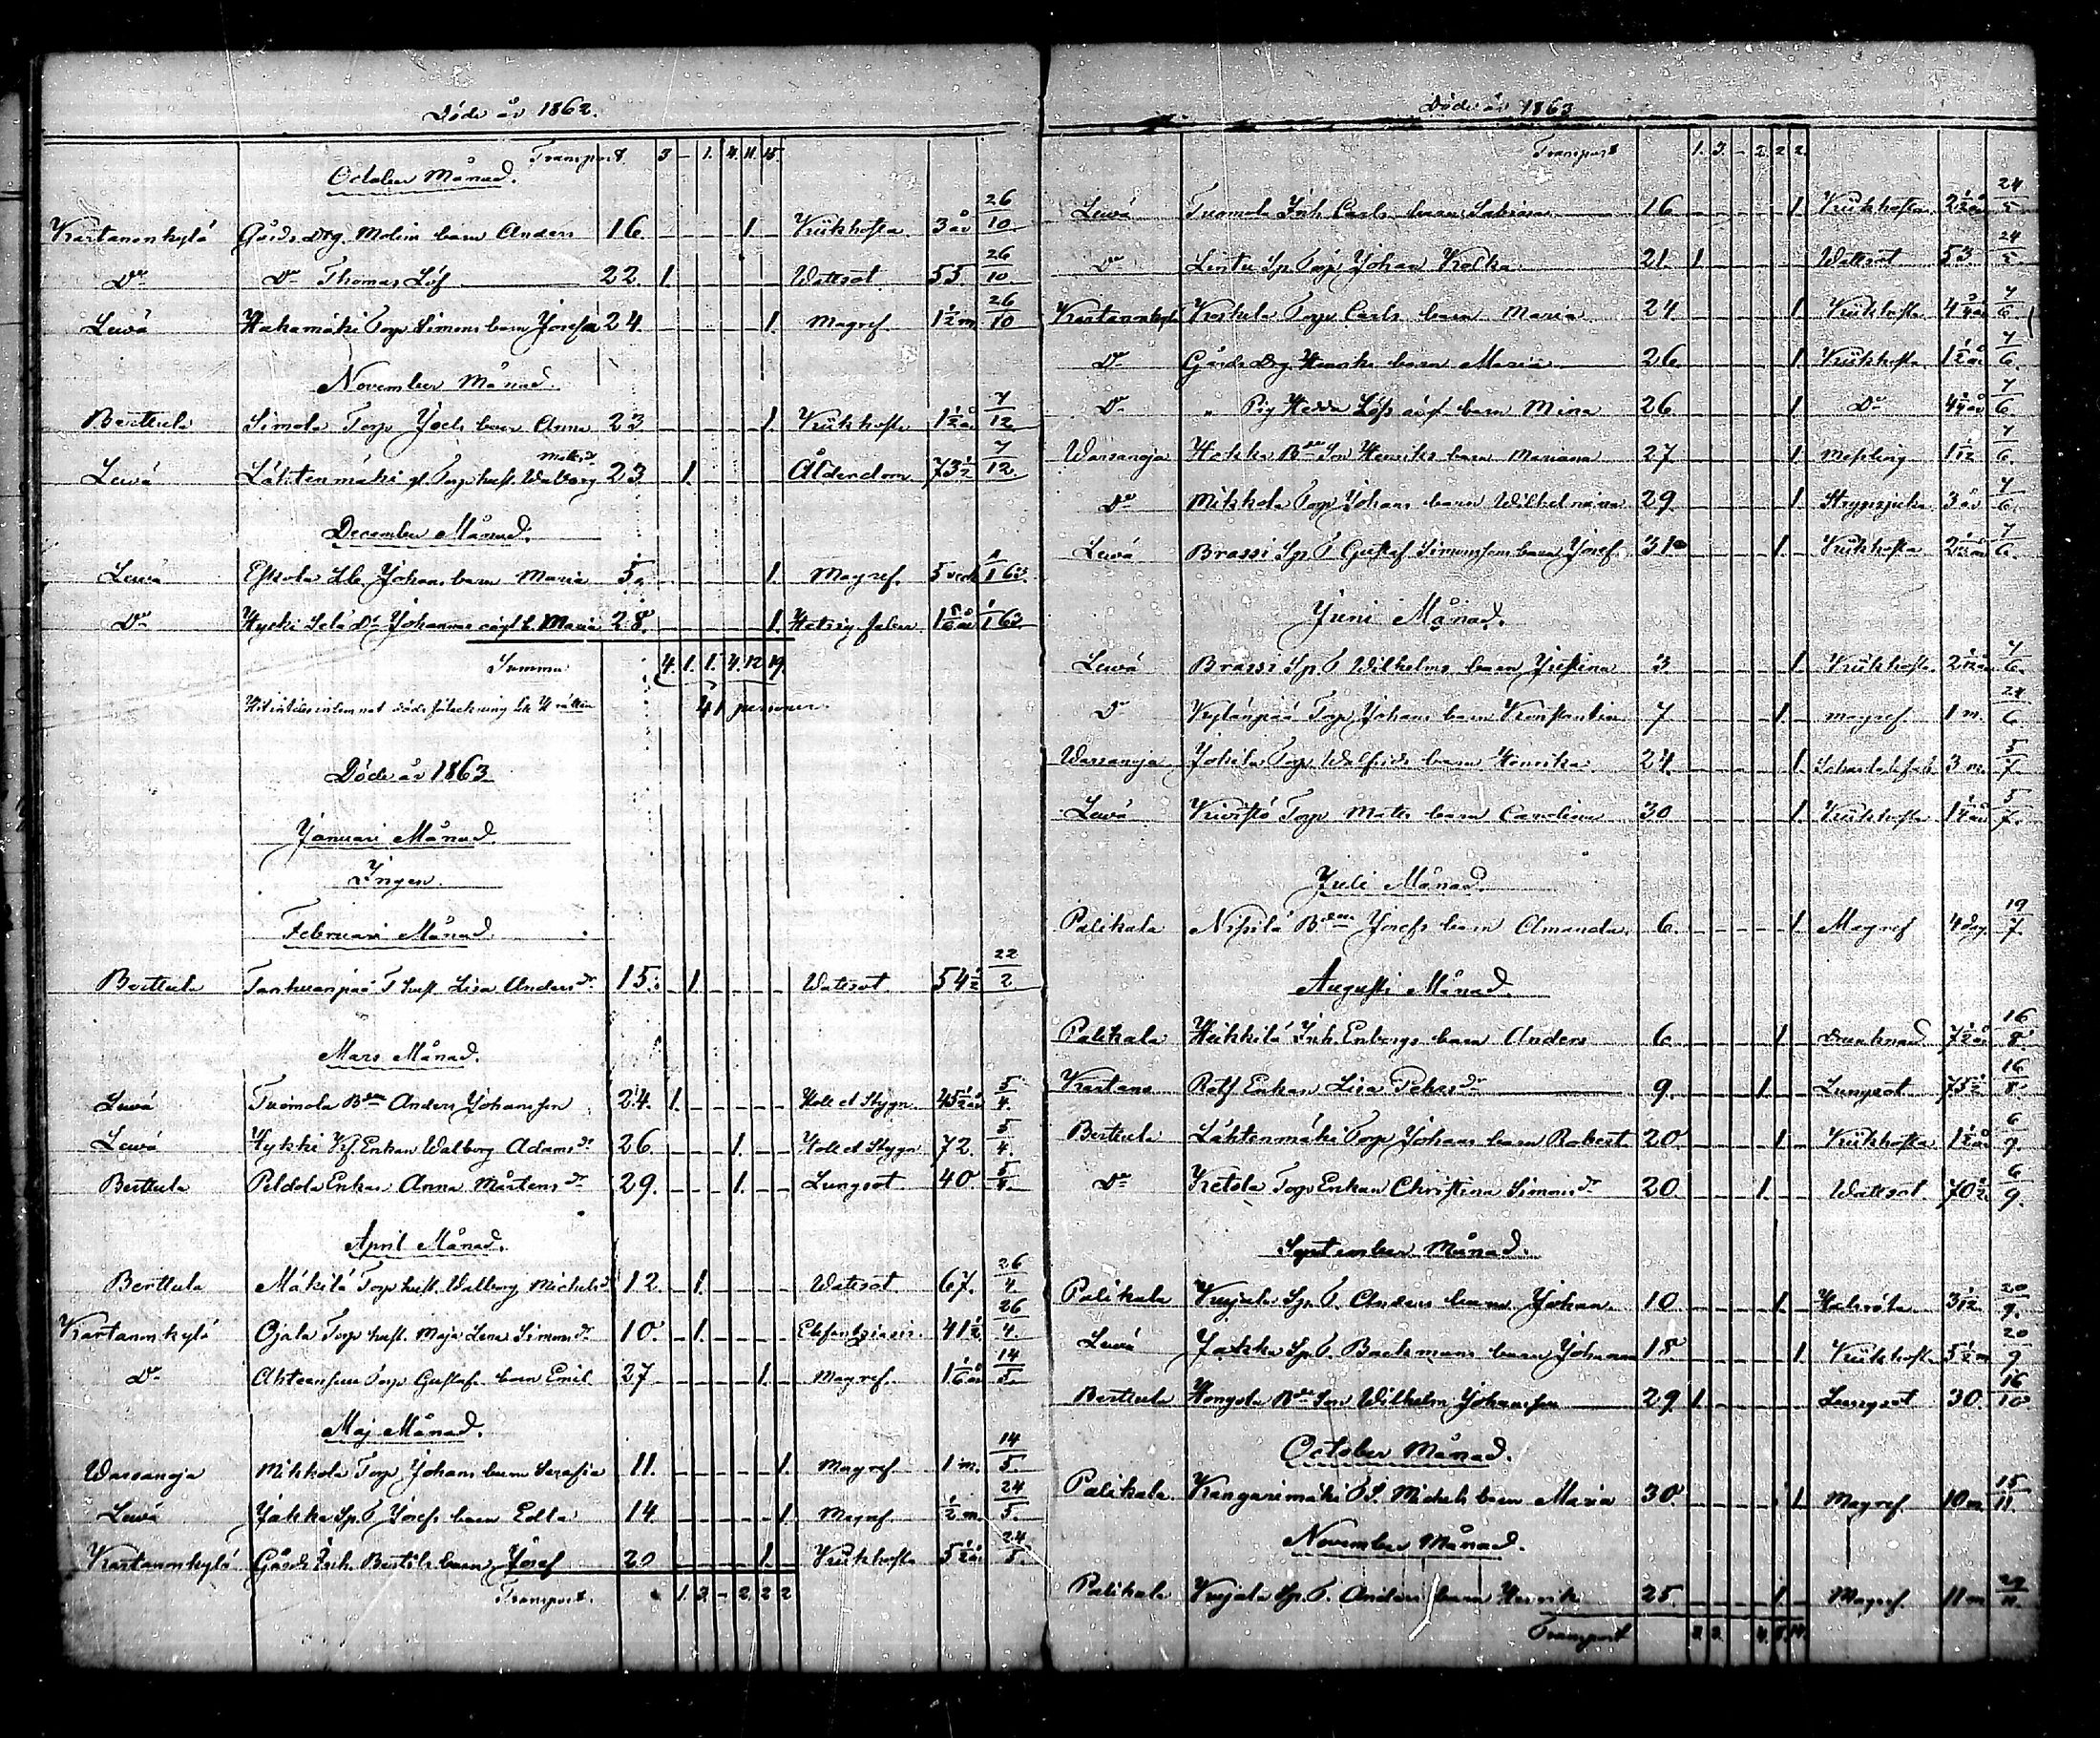 Döde år 1862.
Transport. 3 – 1. 4. 11. 15.
October Månad.
Kartanonkylä Gårds drg. Molin barn Anders 16. 1. Kikhosta 3 år 26/10
Do Do Thomas Löf 22 1. Wattsot 55. 26/10
Lewä Hakamäki Torp Simons barn Josefa 24. 1. Magref 1½ m 26/10
November Månad.
Berttula Simola Torp Joels barn Anna 23 1. Kikhosta 1½ år 7/12
Lewä Lähtenmäki gl. Torp hust. Walborg Matts dr 23 1. Ålderdom 73½ 7/12
December Månad.
Lewä Eskola Johans barn Maria 5. 1. Magref. 5 veck 1/1 63.
Do Hycki Johannes Maria 28. 1. Hetsig feber 1/1 63
Summa 4. 1. 1. 4. 12 19
41 personer
Döde år 1863
Januari Månad.
Ingen.
Februari Månad
Berttula Tanhuanpää T. hust. Lisa Anders dr 15. 1. Wattsot 54½ 22/2
Mars Månad.
Lewä Tuomola Bdn Anders Johansson 24. 1. Håll et Stygn 45½ år 5/4.
Lewä Hykki Enkan Walborg Adams dr 26 1. Håll et Stygn 72. 5/4.
Berttula Peldola Enkan Anna Mårtens dr 29. 1. Lungsot 40 5/4
April Månad.
Berttula Mäkilä Torp hust. Walborg Michels dr 12. 1. Wattsot 67. 26/4
Kartanonkylä Ojala Torp hust. Maja Lena Simons dr 10. 1. Elefantiasis. 41½ 26/4.
Do Ahteensuu Torp Gustafs barn Emil 27 1. Magref. 14/5
Maj Månad.
Warsanoja Mikkola Torp Johans barn Serafia 11. 1. Magref 1 m. 14/5
Lewä Jakka Sp. T. Josefs barn Edla 14. 1. Magref. ½ m 24/5.
Kartanonkylä Gårds Inh. Bertils barn Josef 20 1. Kikhosta 24/5.
Transport. 1. 3. – 2. 2 2
Döde år 1863
Transport 1. 3. – 2. 2 2.
Lewä Tuomola Inh. Carls barn Sabina 16 1. Kikhosta 2½ år 24/5
Do Lentu Sp. Torp Johan Kolka 21. 1. Wattsot 53. 24/5
Kartanonkylä Koskela Torp Carls barn Maria 24 1. Kikhosta 7/6.
Do Gårds Drg Henriks barn Maria 26. 1. Kikhosta 1½ år 7/6.
Do " Pig Hedda Löfs barn Mina 26 1. Do 7/6
Warsanoja Hokka Bde Son Henriks barn Mariana 27 1. Messling 7/6.
Do Mikkola Torp Johans barn Wilhelmina 29. 1. Strypsjuka 3 år 7/6.
Lewä Brassi Sp. T. Gustaf Simonsons barn Josef 31 1. Kikhosta 7/6.
Juni Månad.
Lewä Brassi Sp. T. Wilhelms barn Justina 3 1. Kikhosta 7/6.
Do Kylänpää Torp Johans barn Konstantin 7 1. magref. 1 m. 24/6
Warsanoja Jokila Torp Walfrids barn Henrika 24. 1. 3 m. 5/7.
Lewä Kivistö Torp Matts barn Carolina 30 1. Kikhosta 5/7.
Juli Månad
Palikala Nissilä Josefs barn Amanda 6. 1. Magref 4 dg. 19/7.
Augusti Månad.
Palikala Heikkilä Inh. Enbergs barn Anders 6 1. Drunknad 7½ år 16/8
Kartano Rotf. Enkan Lisa Peters dr 9. 1. Lungsot 75½ 16/8.
Berttula Lähtenmäki Torp Johans barn Robert 20 1. Kikhosta 1½ år 6/9.
Do Ketola Torp Enkan Christina Simons dr 20. 1. Wattsot 70½ 6/9.
September Månad.
Palikala Kujala Sp. T. Anders barn Johan 10 1. Halsröta 20/9.
Lewä Jakka Sp. T. Backmans barn Johanna 18. 1. Kikhosta 5½ m 20/9
Berttula Hongola Bde Son Wilhelm Johansson 29. 1. Lungsot 30 16/10
October Månad.
Palikala Kangasimäki Michels barn Maria 30. 1. Magref 10 m 15/11.
November Månad.
Palikala Kujala Sp. T. Anders barn Henrik 25. 1. Magref. 11 m 29/11.
Transport 3. 3. 4. 8. 14.